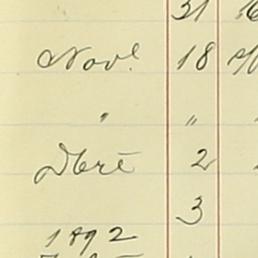 31
Novr 18
" "
Dbre 2
3
1892